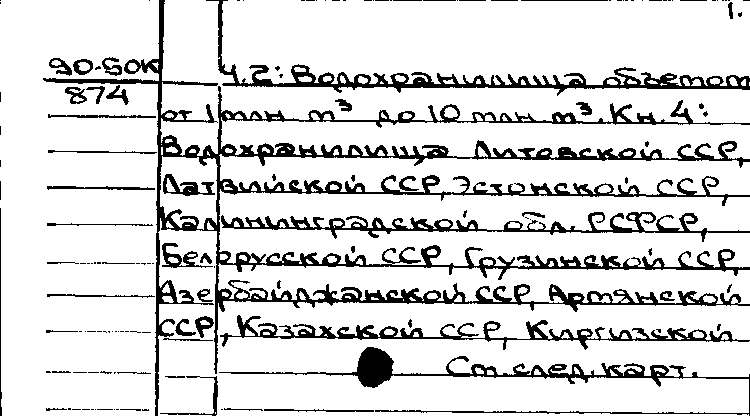 1.
90-50К Ч.2: Водохранилища объемом
874
от 1 млн м³ до 10 млн м³. Кн. 4:
Водохранилища Литовской ССР,
Латвийской ССР, Эстонской ССР,
Калининградской обл. РСФСР,
Белорусской ССР, Грузинской ССР,
Азербайджанской ССР, Армянской
ССР, Казахской ССР, Киргизской
См. след. карт.